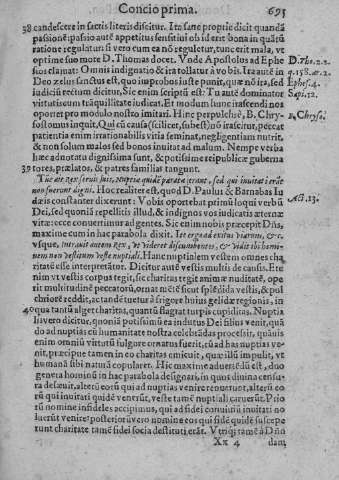 Concio prima. 695
38 candescere in sacris literis discitur. Ita sane proprie dicit quandā
passionē: passio autē appetitus sensitiui ob id erit bona in quātū
ratione regulatur: si vero cum ea nō reguletur, tunc erit mala, vt
optime suo more D. Thomas docet. Vnde Apostolus ad Ephe
sios clamat: Omnis indignatio & ira tollatur à vobis. Ira autē in
Deo zelus sanctus est, quo improbos iuste punit, quæ nō ira, sed
iudiciū rectum dicitur, Sic enim scriptū est: Tu autē dominator
virtutis cum trāquillitate iudicas. Et modum hunc irascendi nos
oportet pro modulo nostro imitari. Hinc perpulchrè, B. Chry-
sostomus inquit, Qui cū causa (scilicet, subest) nō irascitur, peccat
patientia enim irrationabilis vitia seminat, negligentiam nutrit,
& non solum malos sed bonos inuitat ad malum. Nempe verba
hæc adnotatu dignissima sunt, & potissime reipublicæ guberna
39 tores, prælatos, & patres familias tangunt.
D. Tho. 2. 2.
q. 158. ar. 2.
Ephes. 4.
Sapi. 12.
Tūc ait Rex seruis suis, Nuptiæ quidē paratæ erant, sed qui inuitati erāt
non fuerunt digni. Hoc realiter est, quod D. Paulus & Barnabas Iu
dæis constanter dixerunt: Vobis oportebat primū loqui verbū
Dei, sed quoniā repellitis illud, & indignos vos iudicatis æternæ
vitæ: ecce conuertimur ad gentes. Sic enim nobis præcepit Dñs,
maxime cum in hac parabola dixit. Ite ergo ad exitus viarum, &c.
vsque, Intrauit autem Rex, vt videret discumbentes, & vidit ibi homi-
nem non vestitum veste nuptiali. Hanc nuptialem vestem omnes cha
ritatē esse interpretātur. Dicitur autē vestis multis de causis. Ete
nim vt vestis corpus tegit, sic charitas tegit animæ nuditatē, ope
rit multitudinē peccatorū, ornat etiā sicut splēdida vestis, & pul
chriorē reddit, ac tandē tuetur à frigore huius gelidæ regionis, in
40 qua tantū alget charitas, quantū flagrat turpis cupiditas. Nuptia
lis vero dicitur, quoniā potissimū ea indutus Dei filius venit, quā
do ad nuptias cū humanitate nostra celebrādas processit, quāuis
enim omniū virtutū fulgore ornatus fuerit, cū ad has nuptias ve-
nit, præcipue tamen in eo charitas emicuit, quæ illū impulit, vt
humanā sibi naturā copularet. Hic maxime aduertēdū est, duo
genera hominū in hac parabola designari, in quos diuina censu-
ra desæuit, alterū eorū qui ad nuptias venire renuerunt, alterū eo
rū qui inuitati quidē venerūt, veste tamē nuptiali caruerūt. Prio
rū nomine infideles accipimus, qui ad fidei conuiuiū inuitati no
luerūt venire: posteriorū vero nomine eos qui quidē fidē susceperunt
charitate tamē fidei socia destituti erāt. Vtriq; tamē à Dño
Act. 13.
Xx 4 dam